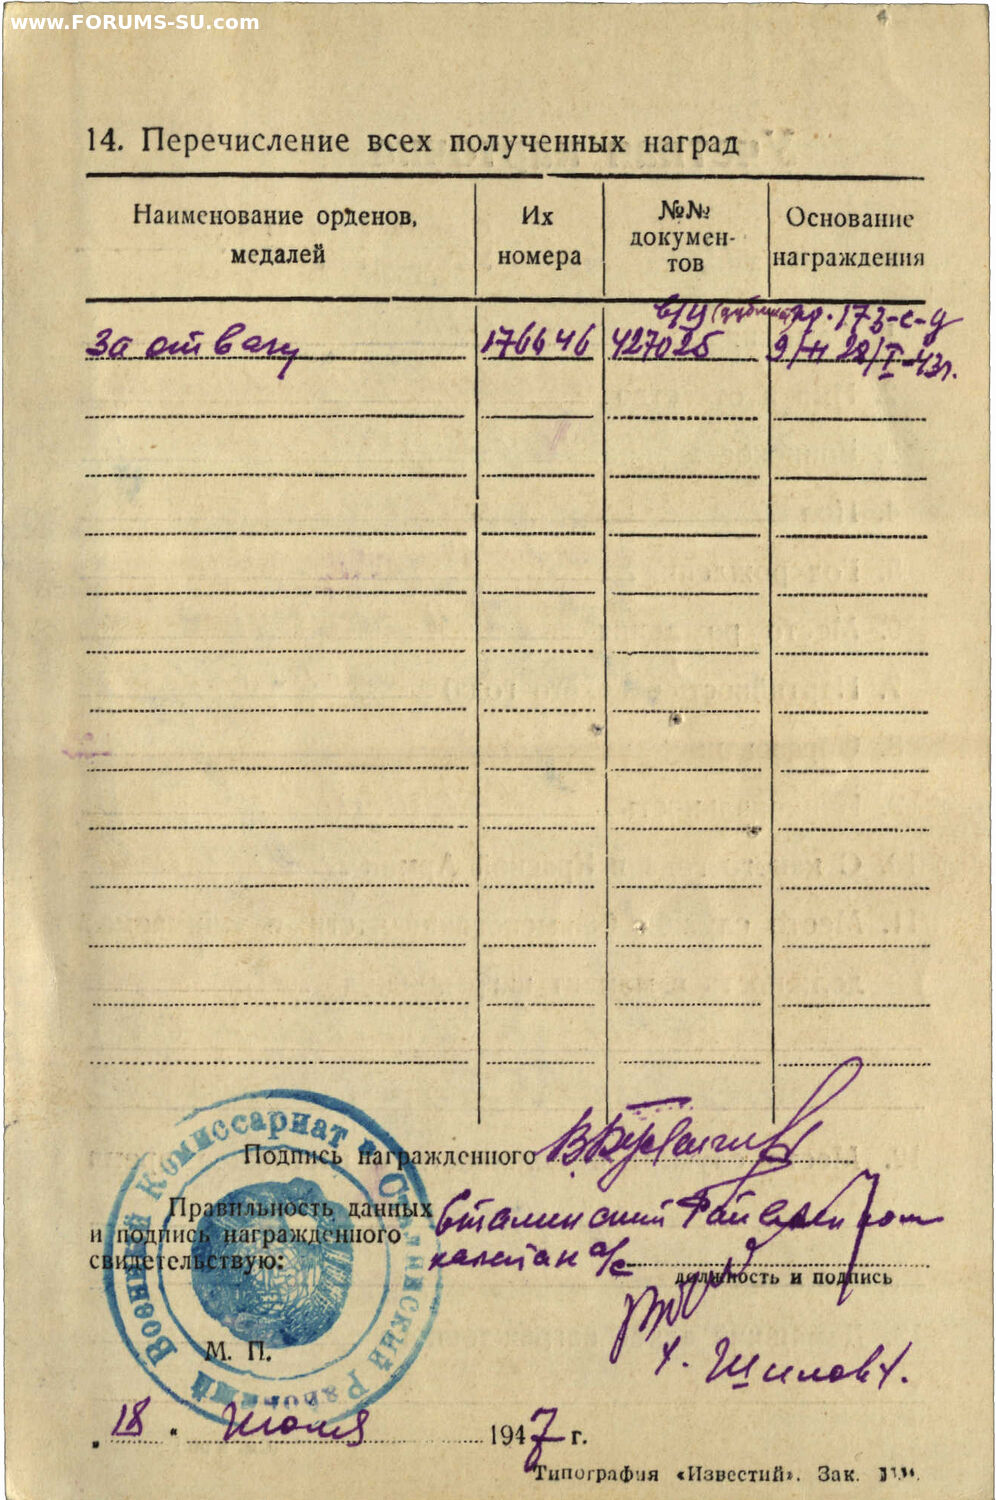 www.FORUMS-SU.com
14. Перечисление всех полученных наград
Наименование орденов, медалей
Их номера
№№ докумен-тов
Основание награждения
За отвагу 176646 427025
пр. 173-с-д
28/I-43г.
Подпись награжденного
Правильность данных
и подпись награжденного
свидетельствую:
Сталинский Райвоенком
капитан а/с
должность и подпись
Военный Комиссариат Сталинский Районный
М. П.
Шилов
„18“ Июля 1947 г.
Типография «Известий». Зак.